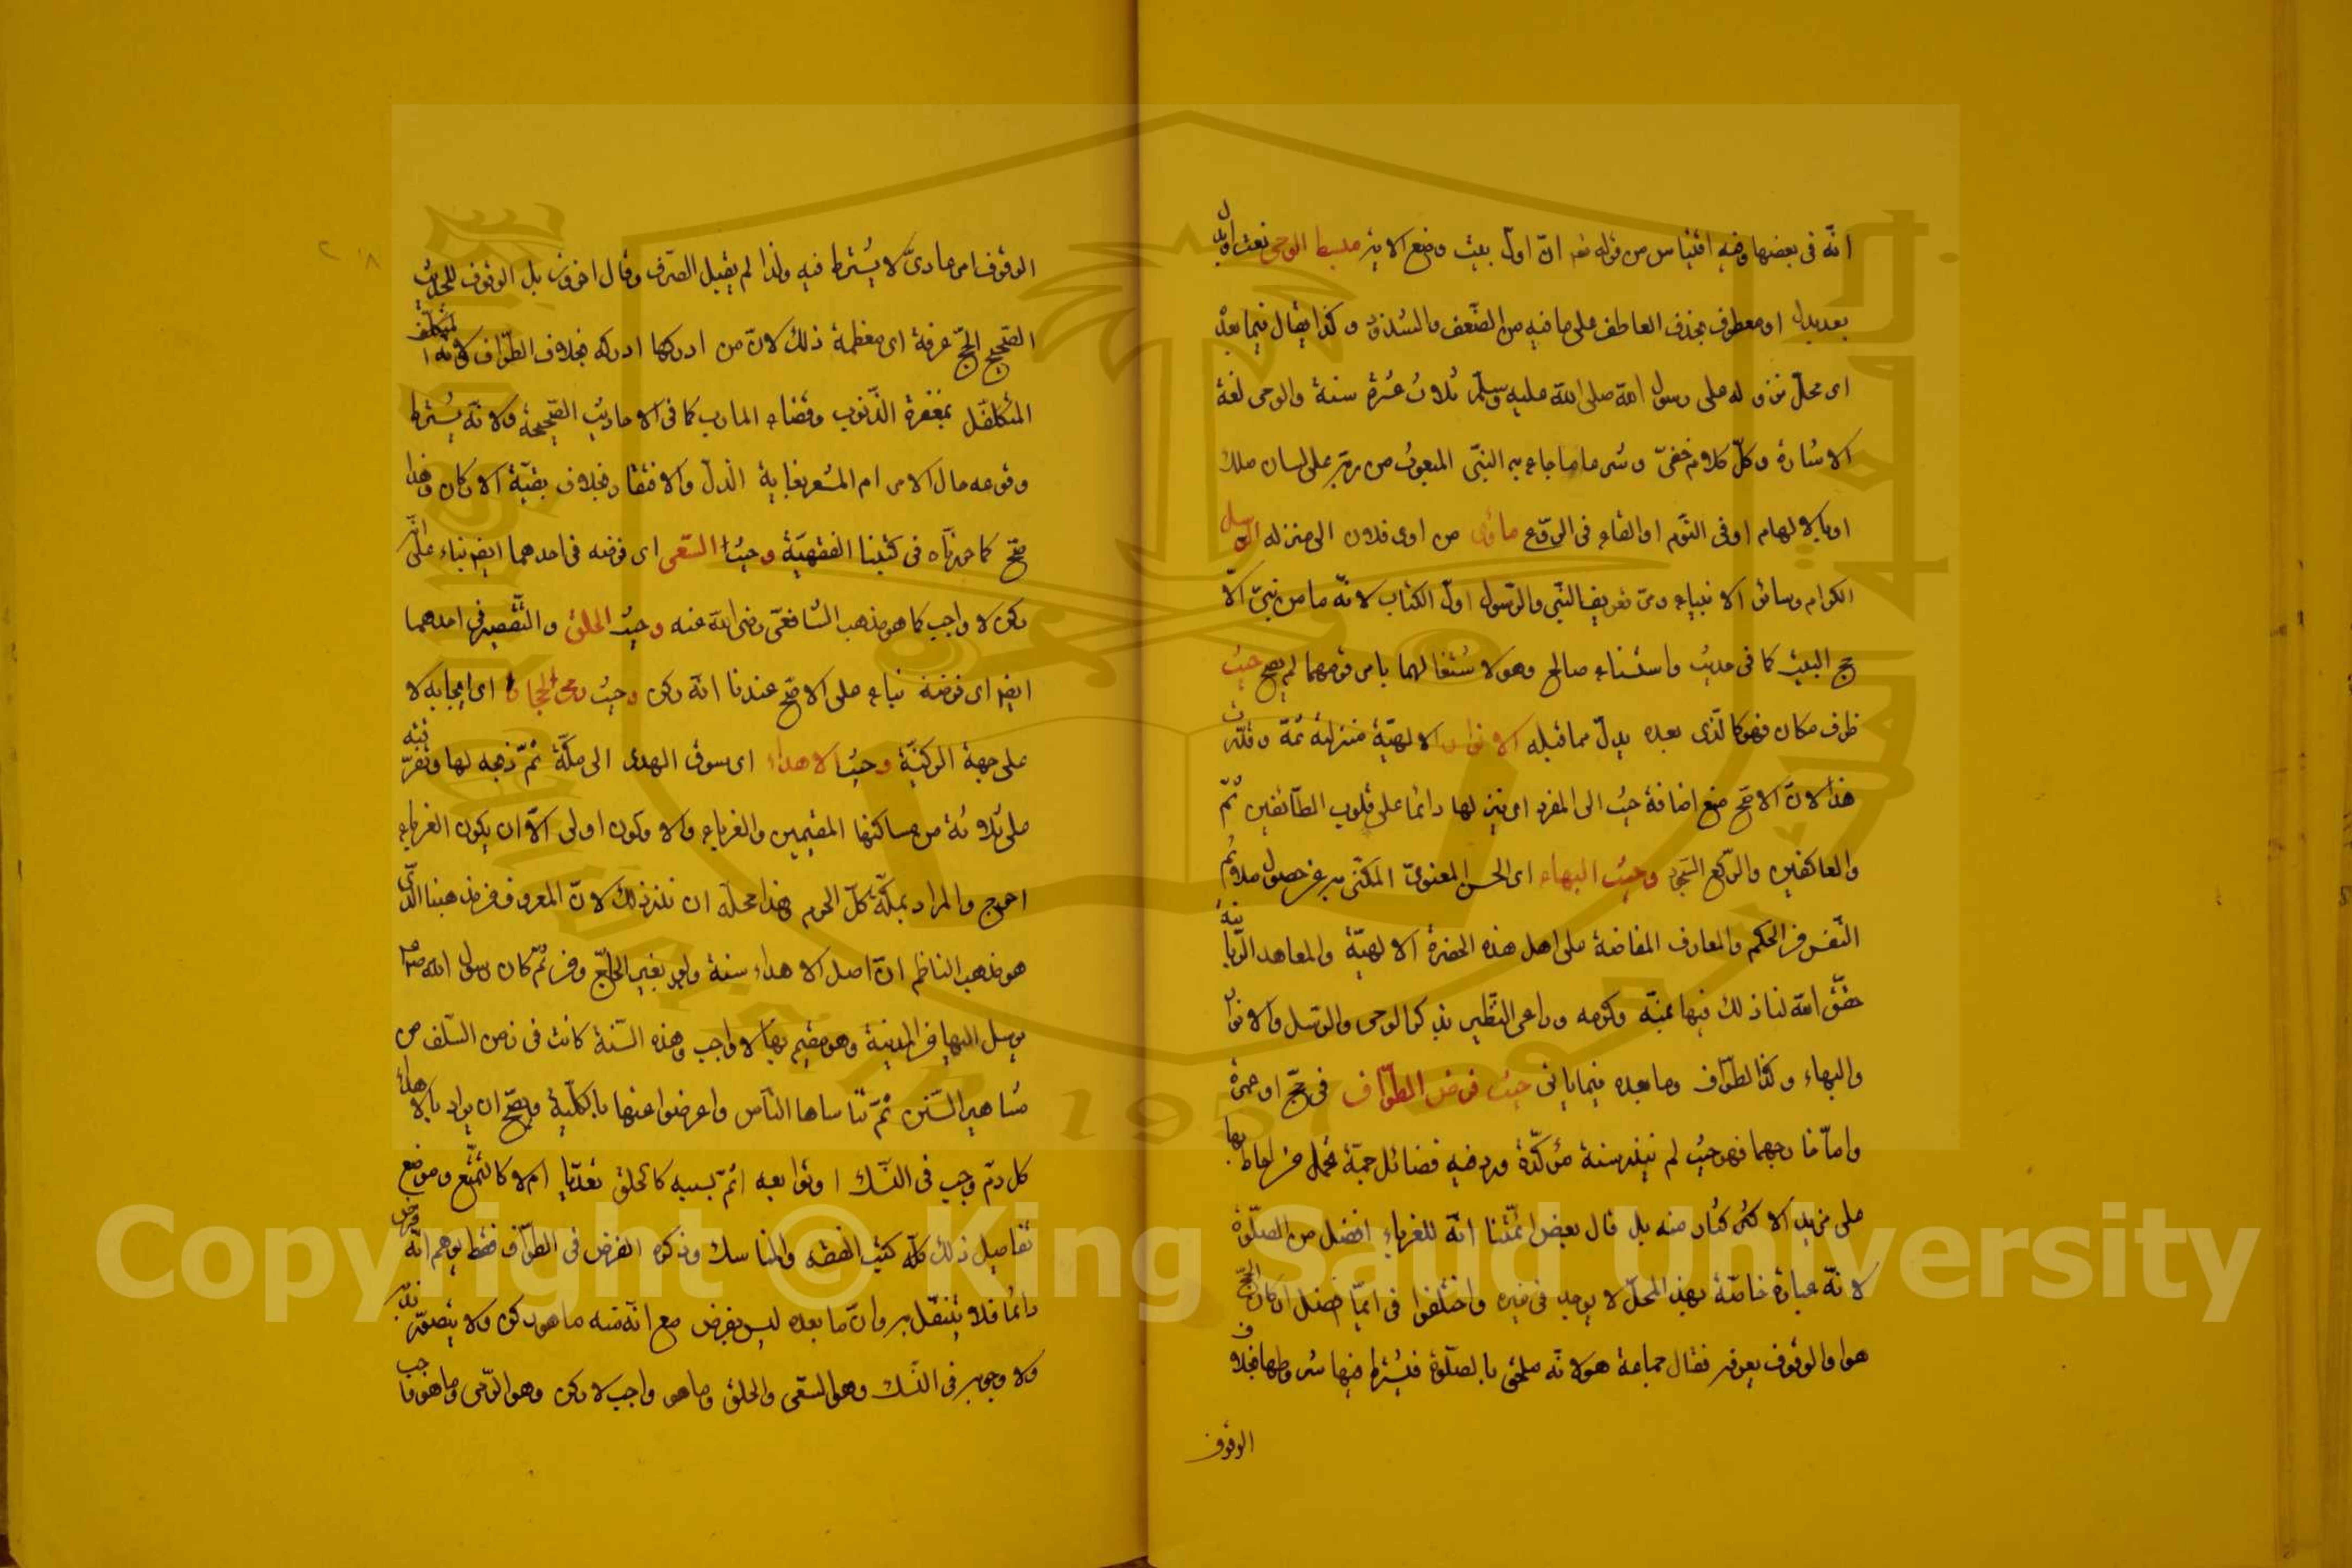 انّه في بعضها وفيه اقتباس من قوله تعالى انّ اوّل بيت وضع الآية مهبط الوحي نعت او بدل
بعد بدل او معطوف بحذف العاطف على ما فيه من الضّعف والشذوذ وكذا يقال فيما بعده
اى محلّ نزوله على رسول الله صلى الله عليه وسلّم ثلاث عشرة سنة والوحى لغة
الاشارة وكلّ كلام خفيّ وشرعا ما جاء به النبيّ المبعوث من ربّه على لسان ملك
او بالالهام او في النّوم او القاء في الرّوع مأوى من اوى فلان الى منزله الرسل
الكرام وسائر الانبياء ومرّ تعريف النّبي والرّسول اوّل الكتاب لانّه ما من نبيّ الّا
حج البيت كما في حديث واستثناء صالح وهود لاشتغالهما بامر قومهما لم يصح حيث
ظرف مكان فهو كالّذى بعده بدل مما قبله الانوار الالهيّة متنزلة ثمّة وقلّت
هذا لانّ الاصحّ منع اضافة حيث الى المفرد اى تنزلها دائما على قلوب الطّائفين ثمّ
والعاكفين والرّكع السّجود وحيث البهاء اى الحسن المعنويّ المكنّى به عن حصول ملائم
النّفس من الحكم والمعارف المفاضة على اهل هذه الحضرة الالهيّة والمعاهد الرّبانيّة
حقّق الله لنا ذلك فيها بمنّه وكرمه وراعى النّظير بذكر الوحى والرّسل والانوار
والبهاء وكذا الطّواف وما بعده فيما ياتى حيث فرض الطّواف في حجّ او عمرة
وامّا خارجهما فهو حيث لم ينذر سنة مؤكّدة ورد فيه فضائل جمّة تحمل من احاط بها
على مزيد الاكثار منه بل قال بعض ائمّتنا انّه للغرباء افضل من الصلوة
لانّه عبادة خاصّة بهذا المحلّ لا يوجد في غيره واختلفوا في ايّ افضل اركان الحجّ
هو او الوقوف بعرفة فقال جماعة هو لانّه ملحق بالصلوة فيشترط فيها شروطها بخلاف
الوقوف
الوقوف امر عاديّ لا يشترط فيه ولذا لم يقبل الصّرف وقال اخرون بل الوقوف للحديث
الصّحيح الحجّ عرفة اى معظمه ذلك لانّ من ادركها ادركه بخلاف الطّواف لانّه
المتكفّل بمغفرة الذّنوب وقضاء المارب كما في الاحاديث الصّحيحة ولانّه يشترط
وقوعه حال الاحرام المشعر بغاية الذلّ والافتقار بخلاف بقيّة الاركان وهذا
صحّ كما حررّناه في كتبنا الفقهيّة وحيث السّعى اى فرضه في احدهما ايضا بناء على انّه
ركن لا واجب كما هو مذهب الشّافعيّ رضى الله عنه وحيث الحلق والتّقصير في احدهما
ايضا اى فرضه بناء على الاصحّ عندنا انّه ركن وحيث رمي الجمار اى ايجابه لا
على جهة الركنيّة وحيث الاهداء اى سوق الهدى الى مكّة ثمّ ذبحه لها وتفرقته
على ثلاثة من مساكنها المقيمين والغرباء والاولون اولى الّا ان يكون الغرباء
احوج والمراد بمكّة كلّ الحرم هذا محلّه ان نذر ذلك لانّ المعروف من مذهبنا الّذى
هو مذهب الناظم انّ اصل الاهداء سنة ولو بغير الحاجّ ومن ثمّ كان رسول الله صلعم
يرسل اليها من المدينة وهو مقيم بها لا واجب وهذه السّنة كانت في زمن السّلف من
مشاهير السّنن ثمّ تناساها النّاس واعرضوا عنها بالكلّية ويصحّ ان يراد بالاهداء
كل دم وجب في النّسك او توابعه اثم بسببه كالحلق تعدّيا ام لا كالتّمتّع وموضع
تفاصيل ذلك كلّه كتب الفقه والمناسك وذكره الفرض في الطّواف فقط يوهم انّه فرض
دائما فلا يتنفّل به وانّ ما بعده ليس بفرض مع انّه منه ما هو ركن ولا يتصوّر ندبه
ولا وجوبه في النّسك وهو السّعى والحلق وما هو واجب لا ركن وهو الرّمى وما هو واجب